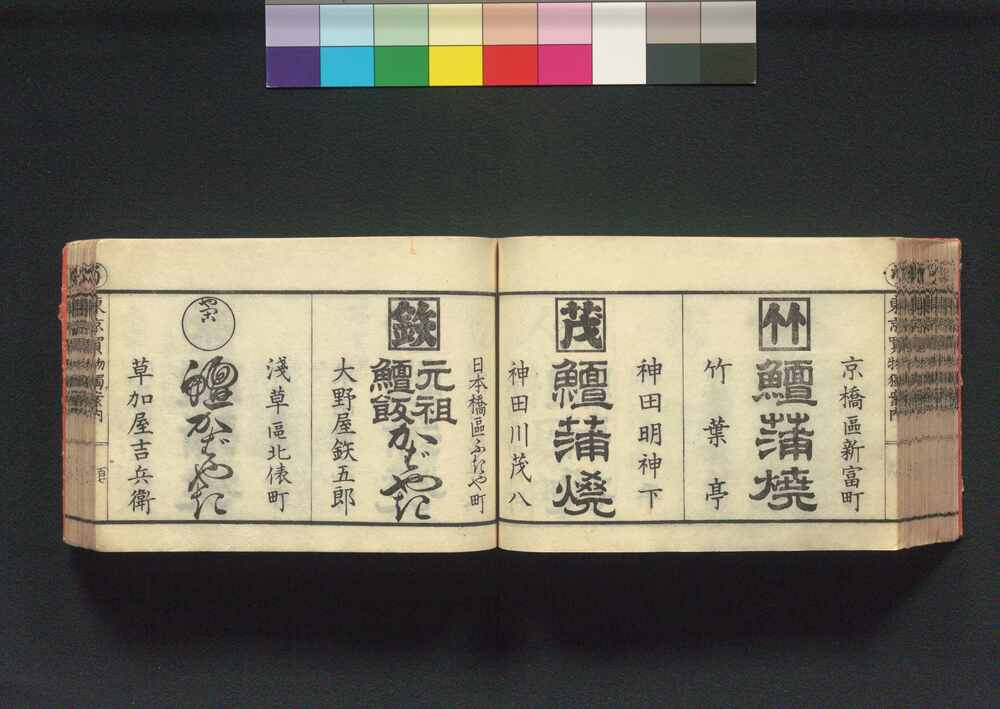 東京買物獨案内
京橋區新富町
竹
鱣蒲燒
竹葉亭
神田明神下
茂
鱣蒲燒
神田川茂八
日本橋區ふきや町
鉄
元祖
鱣飯かばやき
大野屋鉄五郎
淺草區北俵町
鱣かばやき
草加屋吉兵衛
東京買物獨案内